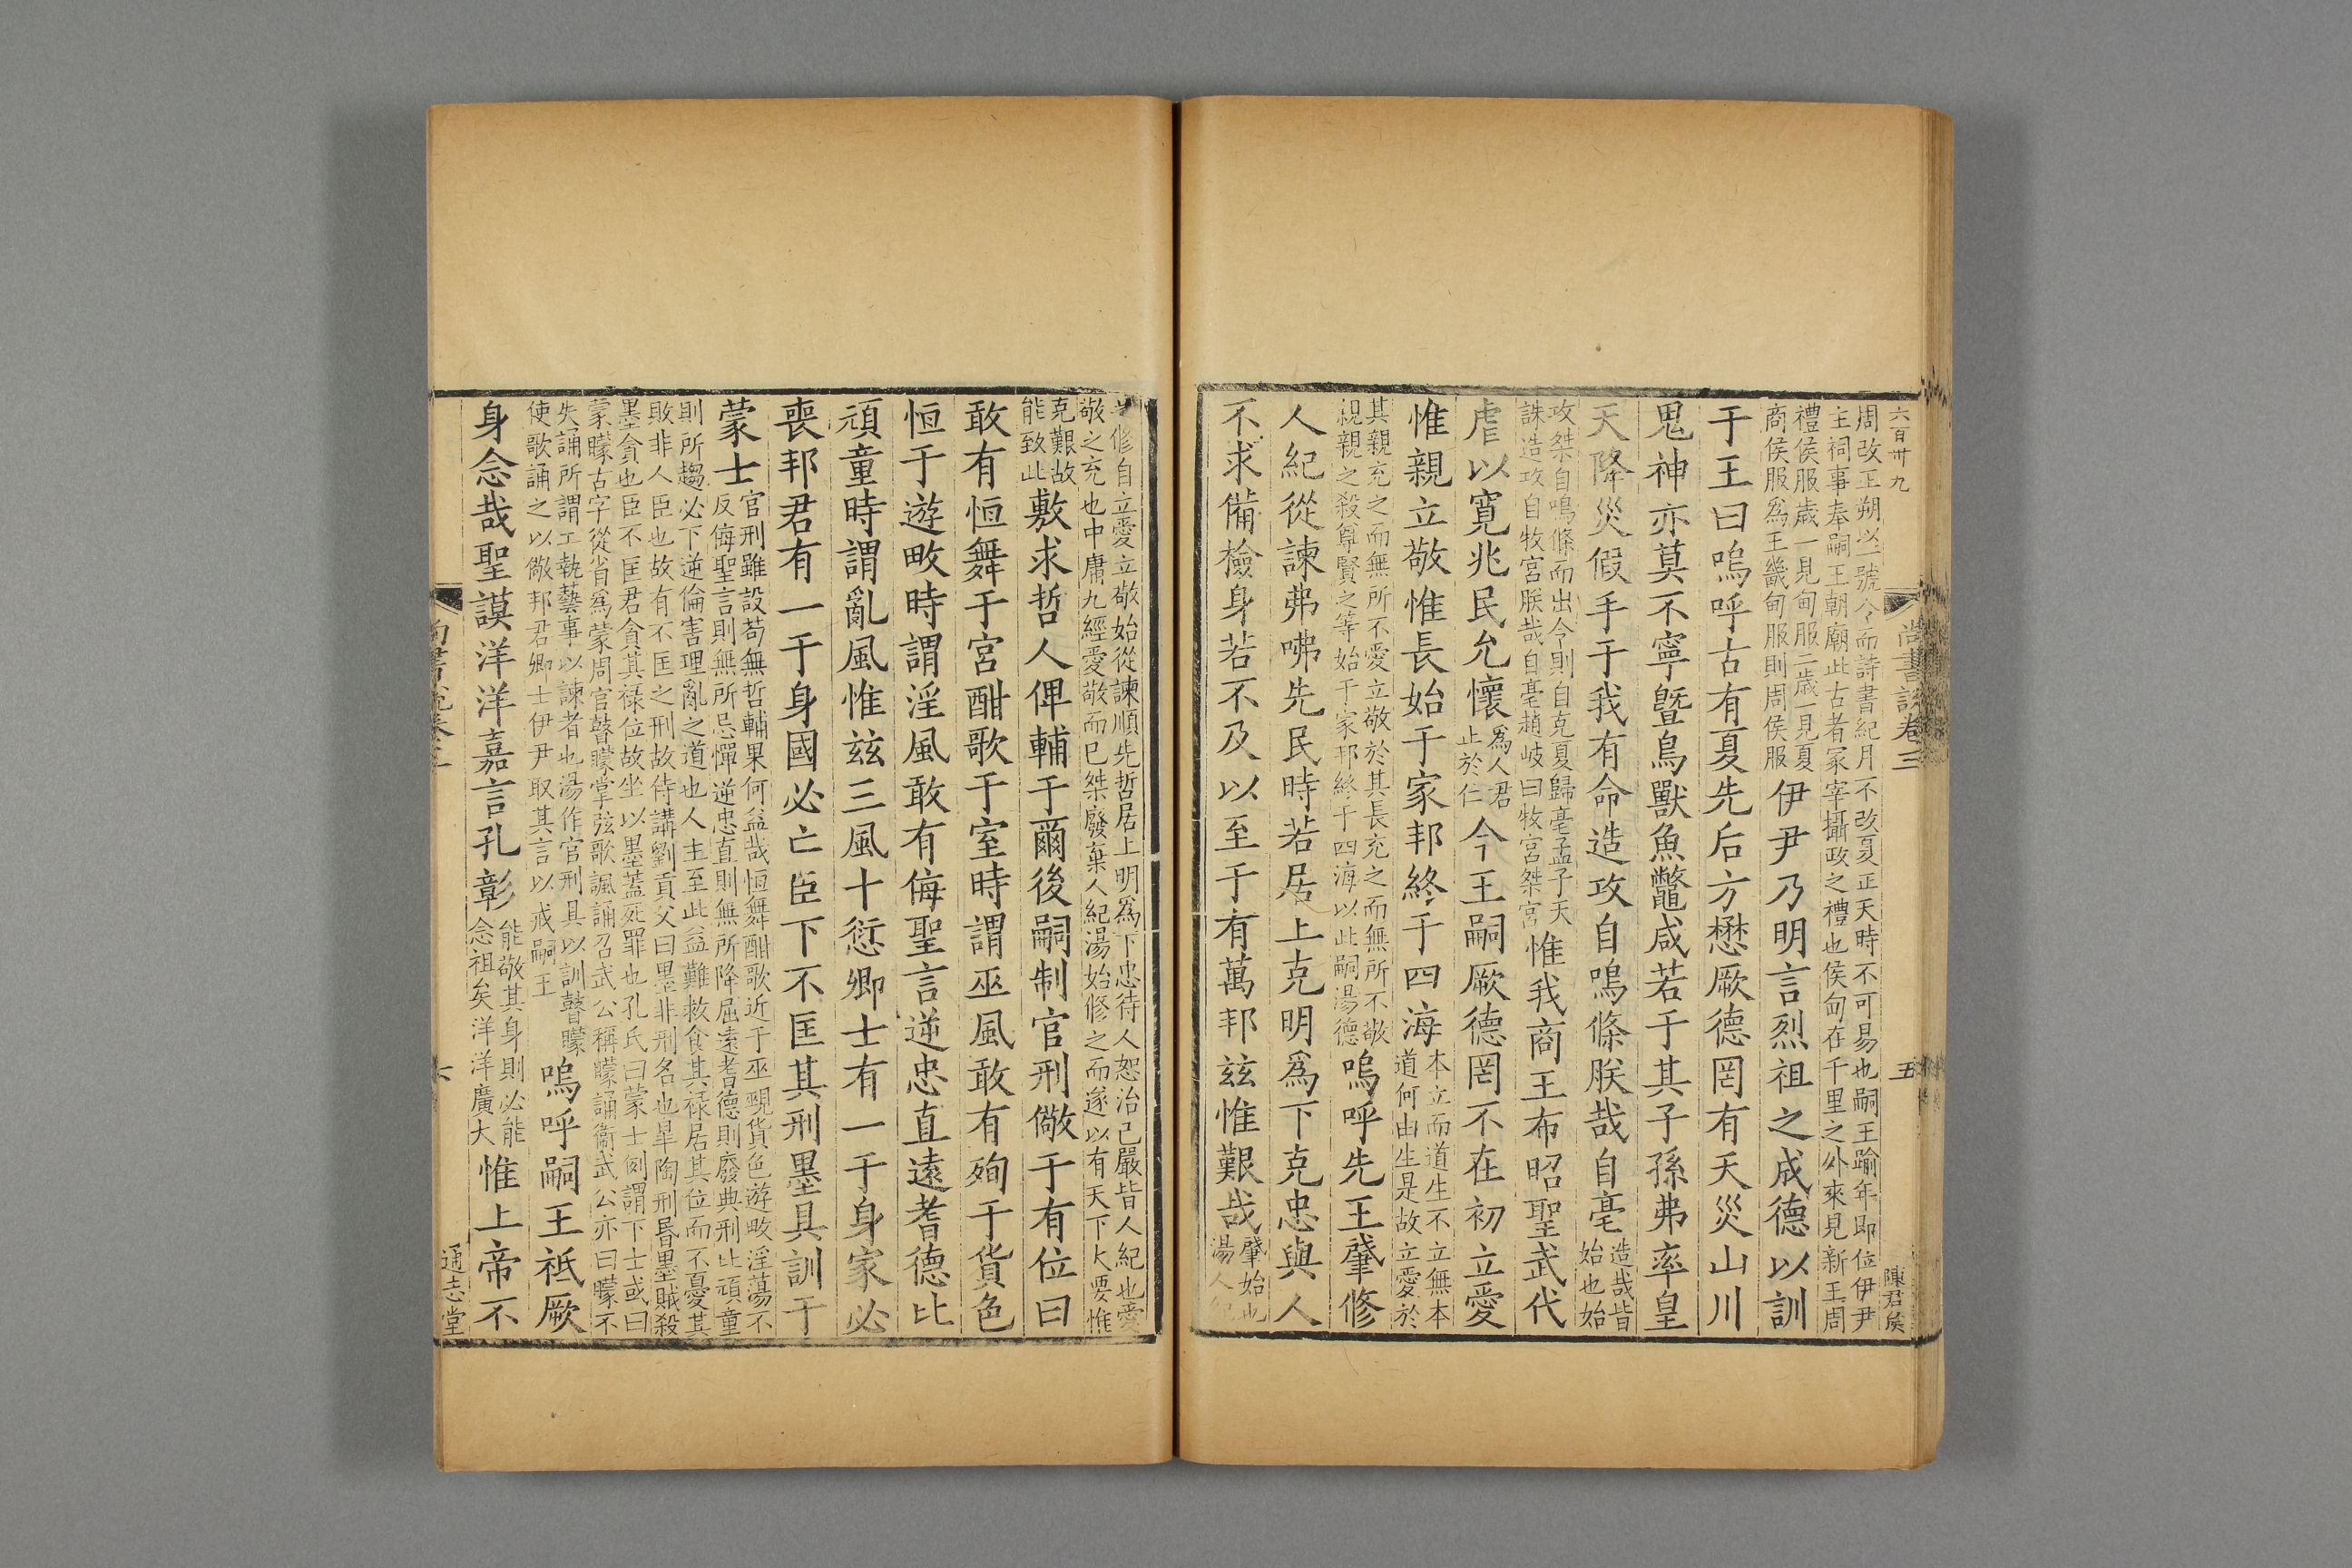 六百卅九
尚書說卷三
五
陳君矦
周改正朔以號令而詩書紀月不改夏正天時不可易也嗣王踰年即位伊尹
主祠事奉嗣王朝廟此古者冢宰攝政之禮也侯甸在千里之外來見新王周
禮侯服歲一見甸服二歲一見夏
商侯服爲王畿甸服則周侯服
伊尹乃明言烈祖之成德以訓
于王曰嗚呼古有夏先后方懋厥德罔有天災山川
鬼神亦莫不寧暨鳥獸魚鼈咸若于其子孫弗率皇
天降災假手于我有命造攻自鳴條朕哉自亳
造哉皆
始也始
攻桀自鳴條而出令則自克夏歸亳孟子天
誅造攻自牧宮朕哉自亳趙岐曰牧宮桀宮
惟我商王布昭聖武代
虐以寬兆民允懷
爲人君
止於仁
今王嗣厥德罔不在初立愛
惟親立敬惟長始于家邦終于四海
本立而道生不立無本
道何由生是故立愛於
其親充之而無所不愛立敬於其長充之而無所不敬
親親之殺尊賢之等始于家邦終于四海以此嗣湯德
嗚呼先王肇修
人紀從諫弗咈先民時若居上克明爲下克忠與人
不求備檢身若不及以至于有萬邦兹惟艱哉
肇始也
湯人紀
修自立愛立敬始從諫順先哲居上明爲下忠待人恕治己嚴皆人紀也愛
敬之充也中庸九經愛敬而已桀廢棄人紀湯始修之而遂以有天下大要惟
克艱故
能致此
敷求哲人俾輔于爾後嗣制官刑儆于有位曰
敢有恒舞于宮酣歌于室時謂巫風敢有殉于貨色
恒于遊畋時謂淫風敢有侮聖言逆忠直遠耆德比
頑童時謂亂風惟兹三風十愆卿士有一于身家必
喪邦君有一于身國必亡臣下不匡其刑墨具訓于
蒙士
官刑雖設苟無哲輔果何益哉恒舞酣歌近于巫覡貨色遊畋淫蕩不
反侮聖言則無所忌憚逆忠直則無所降屈遠耆德則廢典刑比頑童
則所趨必下逆倫害理亂之道也人主至此益難救食其祿居其位而不憂其
敗非人臣也故有不匡之刑故待講劉貢父曰墨非刑名也皐陶刑昬墨賊殺
墨貪也臣不匡君貪其祿位故坐以墨蓋死罪也孔氏曰蒙士例謂下士或曰
蒙矇古字從省爲蒙周官瞽矇掌弦歌諷誦召武公稱矇誦衞武公亦曰矇不
失誦所謂工執藝事以諫者也湯作官刑具以訓瞽矇
使歌誦之以儆邦君卿士伊尹取其言以戒嗣王
嗚呼嗣王祗厥
身念哉聖謨洋洋嘉言孔彰
能敬其身則必能
念祖矣洋洋廣大
惟上帝不
尚書說卷三
六
通志堂